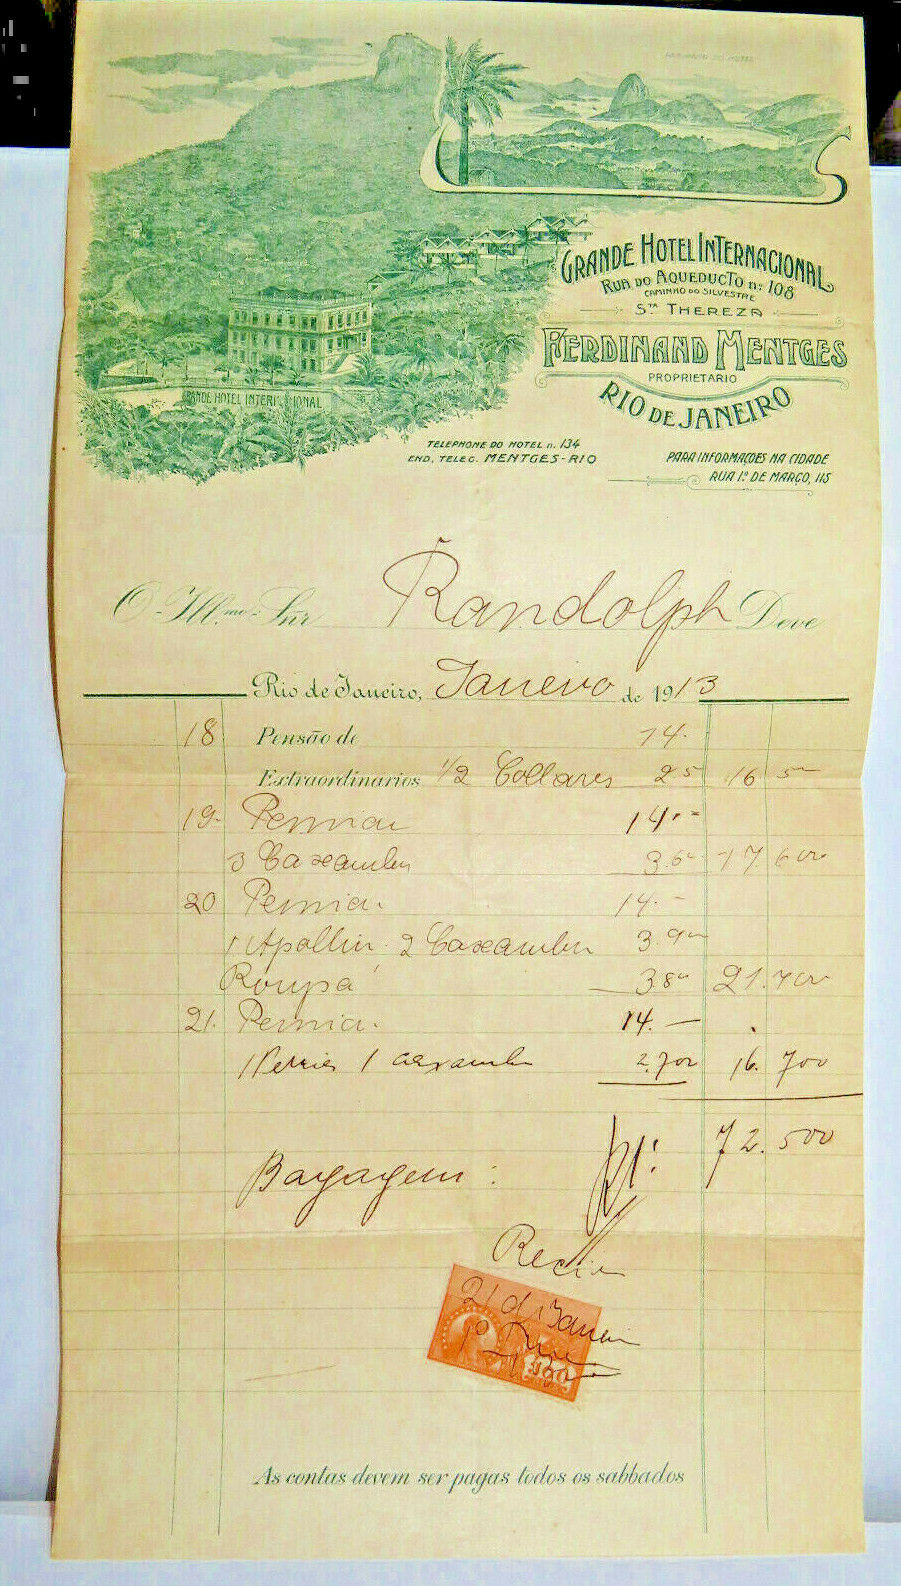 GRANDE HOTEL INTERNACIONAL
RUA DO AQUEDUCTO nº 108
CAMINHO DO SILVESTRE
STA THEREZA
FERDINAND MENTGES
PROPRIETARIO
RIO DE JANEIRO
GRANDE HOTEL INTERNACIONAL
TELEPHONE DO HOTEL n. 134
END. TELEG. MENTGES-RIO
PARA INFORMAÇOES NA CIDADE
RUA 1º DE MARÇO, 115
O Illmo. Snr Randolph Deve
Rio de Janeiro, Janeiro de 1913
18 Pensão de 14.
Extraordinarios 1/2 Collares 25 16 5
19 14.
3 Caxambu 3.6 17 600
20 14.
1 Apollin. 2 Caxambu 3.9
Roupa 3.8 21.700
21. 14.
1 Perrier 1 caxambu 2.700 16.700
72.500
Bagagem:
21 d
As contas devem ser pagas todos os sabbados